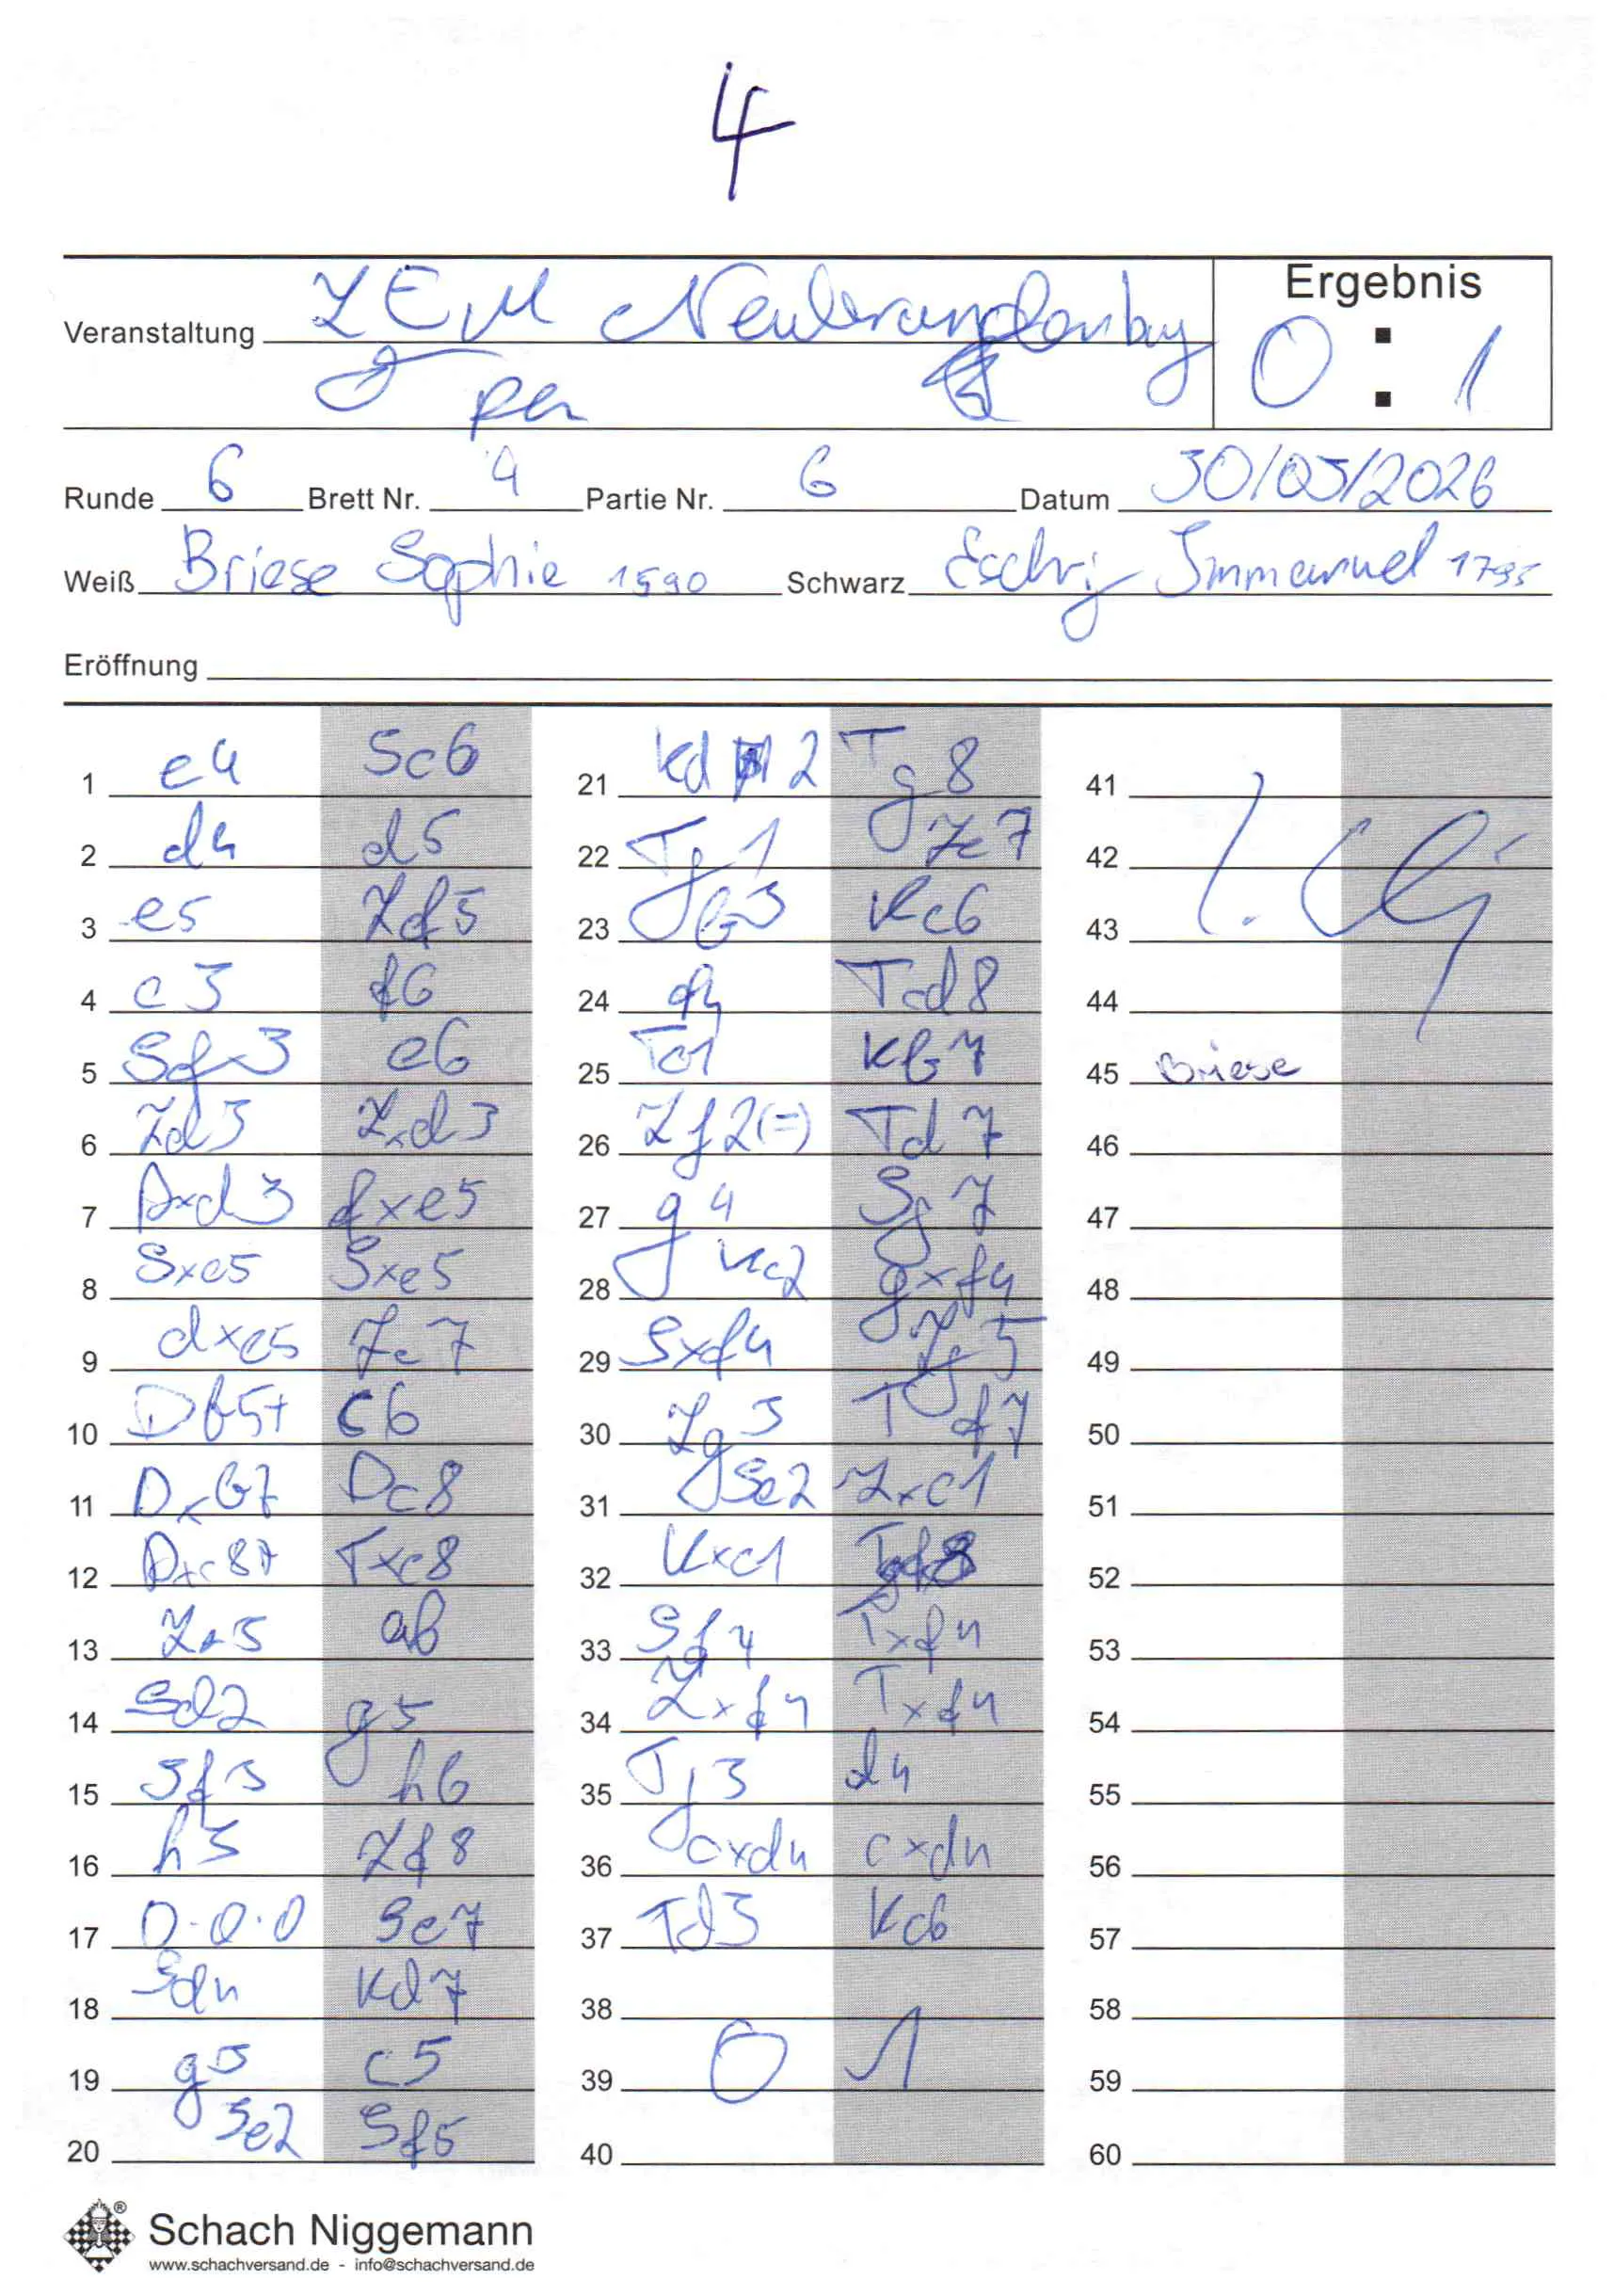 4
Veranstaltung LEM Neubrandenburg
Open
Ergebnis
0 : 1
Runde 6 Brett Nr. 4 Partie Nr. 6 Datum 30/03/2026
Weiß Briese Sophie 1590 Schwarz Immanuel 1795
Eröffnung
1 e4 Sc6
2 d4 d5
3 e5 Lf5
4 c3 f6
5 Sf3 e6
6 Ld3 Lxd3
7 Dxd3 fxe5
8 Sxe5 Sxe5
9 dxe5 Le7
10 Db5+ c6
11 Dxb7 Dc8
12 Dxc8+ Txc8
13 Le3 a6
14 Sd2 g5
15 Sf3 h6
16 h3 Lf8
17 0-0-0 Se7
18 Sd4 Kd7
19 g3 c5
20 Se2 Sf5
21 Kd2 Tg8
22 Tg1 Le7
23 b3 Kc6
24 f4 Tcd8
25 Tc1 Kb7
26 Lf2(=) Td7
27 g4 Sg7
28 Kc2 gxf4
29 Sxf4 Lg5
30 Lg3 Tf7
31 Se2 Lxc1
32 Kxc1 Tgf8
33 Sf4 Txf4
34 Lxf4 Txf4
35 Tg3 d4
36 cxd4 cxd4
37 Td3 Kc6
38
39 0 1
40
41
42
43
44
45 Briese
46
47
48
49
50
51
52
53
54
55
56
57
58
59
60
® Schach Niggemann
www.schachversand.de - info@schachversand.de